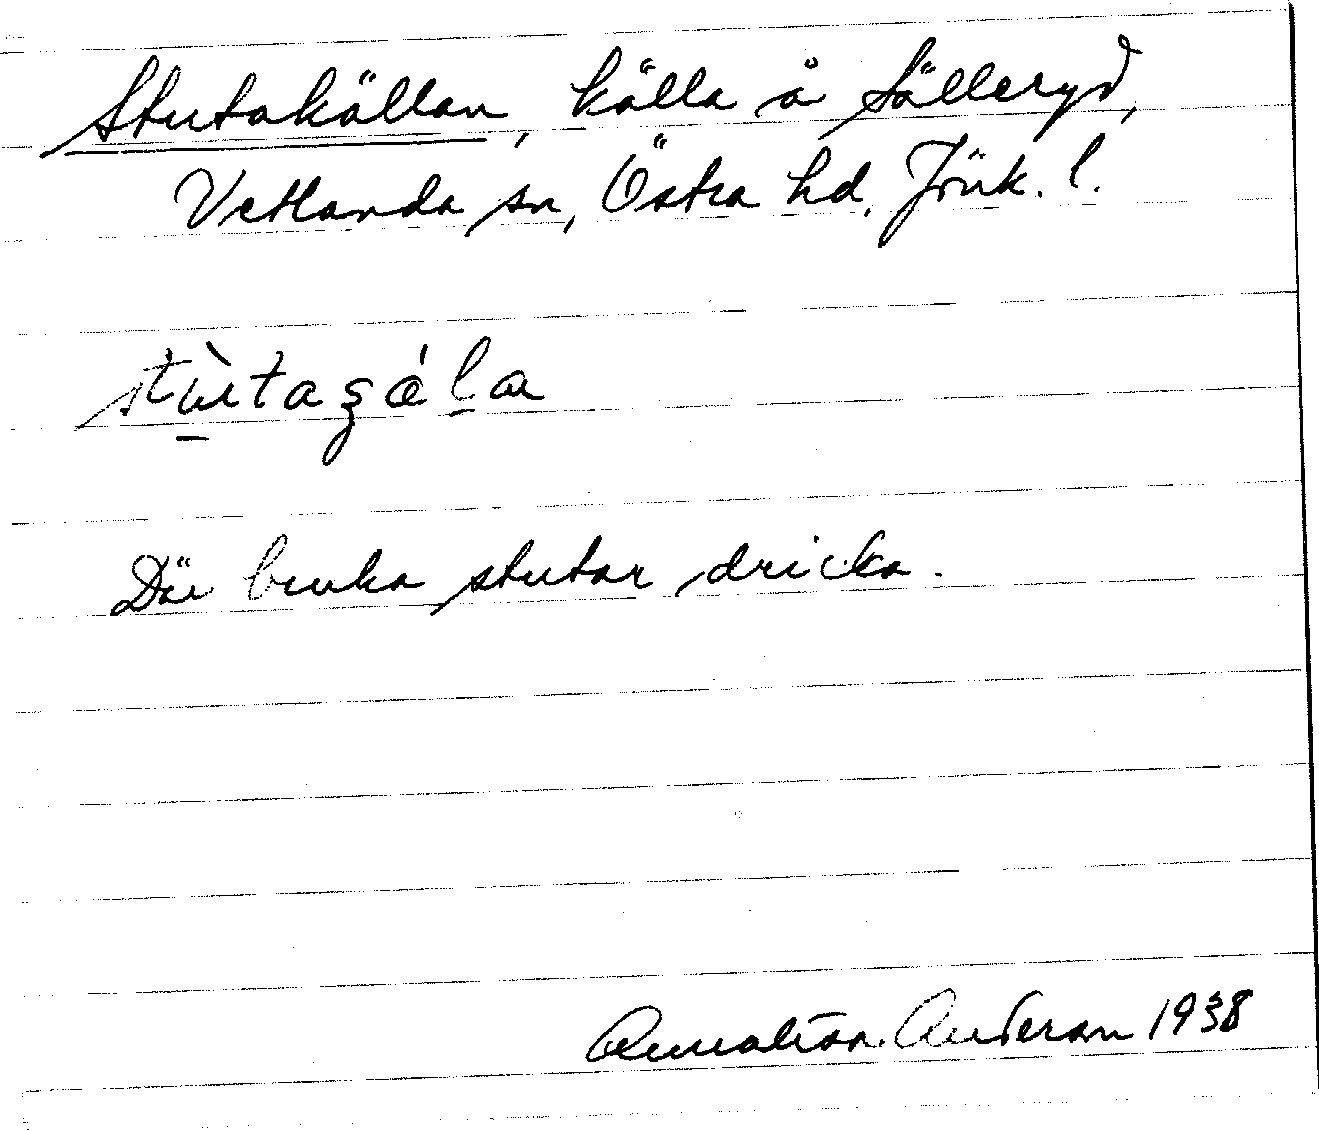 Stutakällan, källa å Sälleryd,
Vetlanda sn, Östra hd, Jönk. l.
stùtaʒá̈la
Där bruka stutar dricka.
Anderson 1938